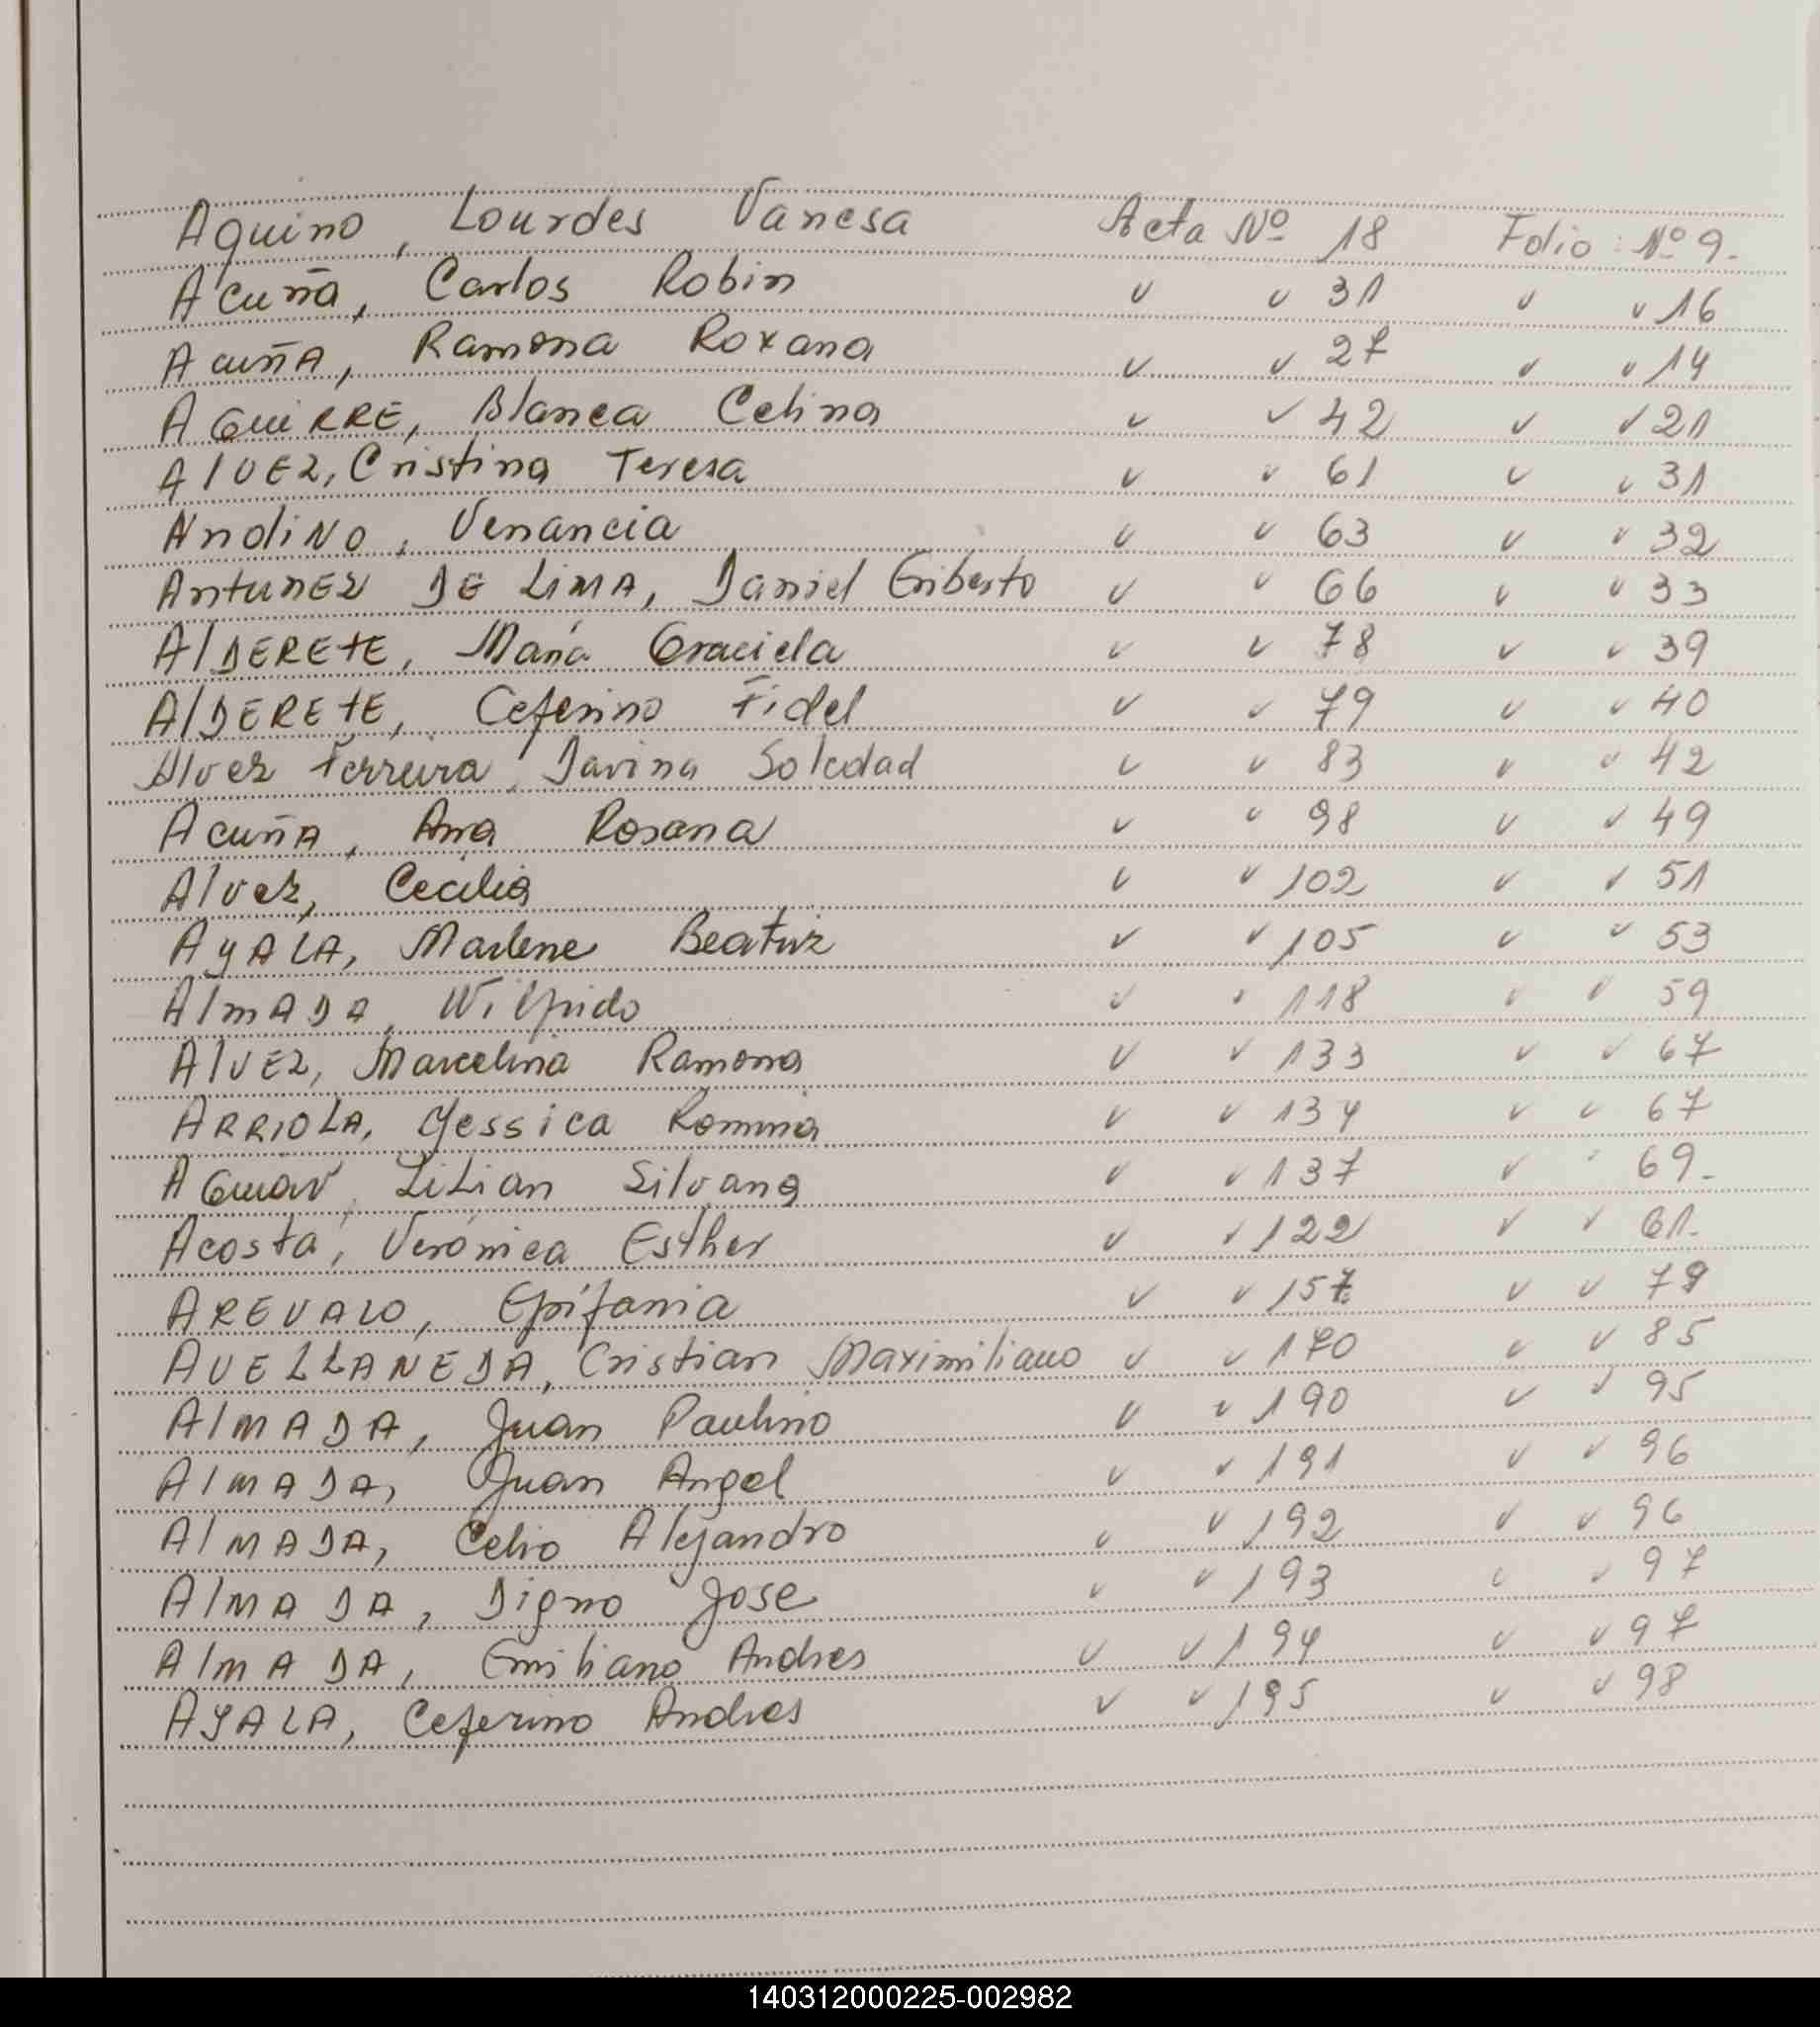 Aquino, Lourdes Vanesa Acta Nº 18 Folio: Nº 9.
Acuña, Carlos Robin " " 31 " " 16
AcuñA, Ramona Roxana " " 27 " " 14
AGuiRRE, Blanca Celina " " 42 " " 21
AlvEz, Cristina Teresa " " 61 " " 31
AndiNo, Venancia " " 63 " " 32
AntunEz DE LiMA, Daniel Eriberto " " 66 " " 33
AlDERETE, María Graciela " " 78 " " 39
AlDERETE, Ceferino Fidel " " 79 " " 40
Alvez Ferreira, Davina Soledad " " 83 " " 42
AcuñA, Ana Rosana " " 98 " " 49
Alvez, Cecilia " " 102 " " 51
AyALA, Marlene Beatriz " " 105 " " 53
AlmADA, Wilfrido " " 118 " " 59
AlvEz, Marcelina Ramona " " 133 " " 67
ARRIOLA, Yessica Romina " " 134 " " 67
AGuiar, LiLian Silvana " " 137 " " 69.
Acosta, Verónica Esther " " 122 " " 61.
AREVALO, Epifania " " 157 " " 79
AVELLANEDA, Cristian Maximiliano " " 170 " " 85
AlMADA, Juan Paulino " " 190 " " 95
AlMADA, Juan Angel " " 191 " " 96
AlMADA, Celio Alejandro " " 192 " " 96
AlMADA, Digno Jose " " 193 " " 97
AlmADA, Emiliano Andres " " 194 " " 97
AYALA, Ceferino Andres " " 195 " " 98
140312000225-002982